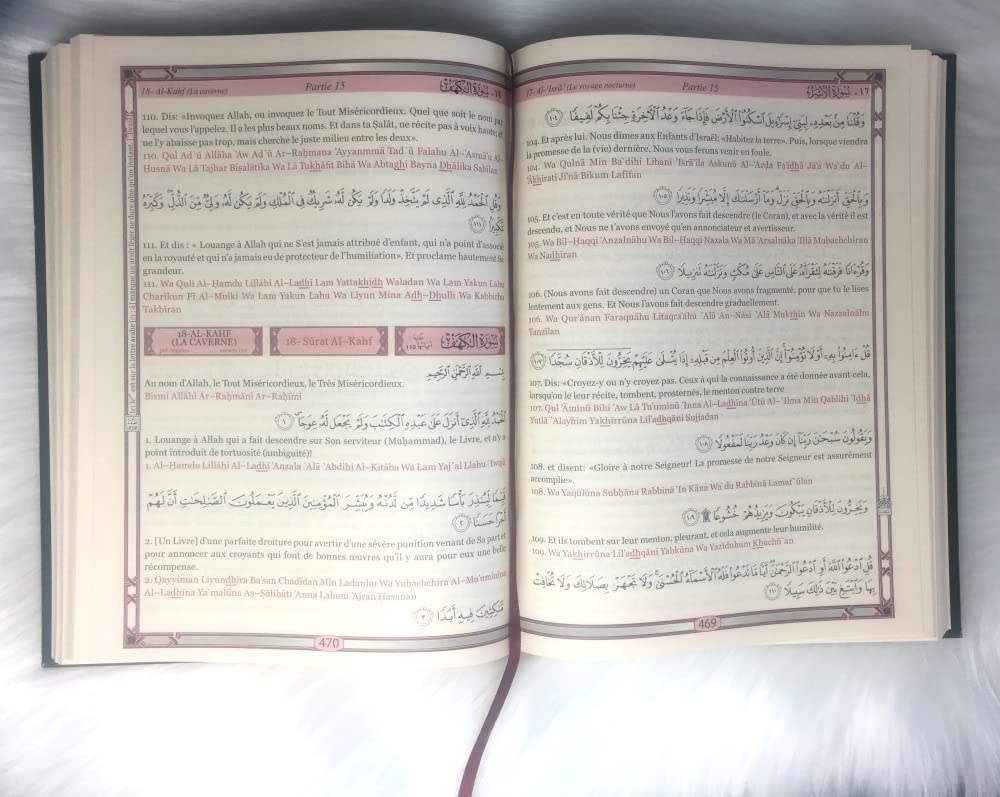 17- Al-'Isrâ' (Le voyage nocturne) Partie 15 ١٧- سورة الإسراء
وَقُلْنَا مِنْ بَعْدِهِ لِبَنِي إِسْرَائِيلَ اسْكُنُوا الْأَرْضَ فَإِذَا جَاءَ وَعْدُ الْآخِرَةِ جِئْنَا بِكُمْ لَفِيفًا ١٠٤
104. Et après lui. Nous dîmes aux Enfants d'Israël: «Habitez la terre». Puis, lorsque viendra
la promesse de la (vie) dernière, Nous vous ferons venir en foule.
104. Wa Qulnā Min Ba`dihi Libanī 'Isrā'īla Askunū Al-'Arđa Fa'idhā Jā'a Wa`du Al-
'Ākhirati Ji'nā Bikum Lafīfan
وَبِالْحَقِّ أَنْزَلْنَاهُ وَبِالْحَقِّ نَزَلَ وَمَا أَرْسَلْنَاكَ إِلَّا مُبَشِّرًا وَنَذِيرًا ١٠٥
105. Et c'est en toute vérité que Nous l'avons fait descendre (le Coran), et avec la vérité il est
descendu, et Nous ne t'avons envoyé qu'en annonciateur et avertisseur.
105. Wa Bil-Ĥaqqi 'Anzalnāhu Wa Bil-Ĥaqqi Nazala Wa Mā 'Arsalnāka 'Illā Mubachchiran
Wa Nadhīran
وَقُرْآنًا فَرَقْنَاهُ لِتَقْرَأَهُ عَلَى النَّاسِ عَلَى مُكْثٍ وَنَزَّلْنَاهُ تَنْزِيلًا ١٠٦
106. (Nous avons fait descendre) un Coran que Nous avons fragmenté, pour que tu le lises
lentement aux gens. Et Nous l'avons fait descendre graduellement.
106. Wa Qur'ānan Faraqnāhu Litaqra'ahu `Alá An-Nāsi `Alá Mukthin Wa Nazzalnāhu
Tanzīlan
قُلْ آمِنُوا بِهِ أَوْ لَا تُؤْمِنُوا إِنَّ الَّذِينَ أُوتُوا الْعِلْمَ مِنْ قَبْلِهِ إِذَا يُتْلَى عَلَيْهِمْ يَخِرُّونَ لِلْأَذْقَانِ سُجَّدًا ١٠٧
107. Dis: «Croyez-y ou n'y croyez pas. Ceux à qui la connaissance a été donnée avant cela,
lorsqu'on le leur récite, tombent, prosternés, le menton contre terre
107. Qul 'Āminū Bihi 'Aw Lā Tu'uminū 'Inna Al-Ladhīna 'Ūtū Al-`Ilma Min Qablihi 'Idhā
Yutlá `Alayhim Yakhirrūna Lil'adhqāni Sujjadan
وَيَقُولُونَ سُبْحَانَ رَبِّنَا إِنْ كَانَ وَعْدُ رَبِّنَا لَمَفْعُولًا ١٠٨
108. et disent: «Gloire à notre Seigneur! La promesse de notre Seigneur est assurément
accomplie».
108. Wa Yaqūlūna Subĥāna Rabbinā 'In Kāna Wa`du Rabbinā Lamaf`ūlan
وَيَخِرُّونَ لِلْأَذْقَانِ يَبْكُونَ وَيَزِيدُهُمْ خُشُوعًا ١٠٩
109. Et ils tombent sur leur menton, pleurant, et cela augmente leur humilité.
109. Wa Yakhirrūna Lil'adhqāni Yabkūna Wa Yazīduhum Khuchū`an
قُلِ ادْعُوا اللَّهَ أَوِ ادْعُوا الرَّحْمَنَ أَيًّا مَا تَدْعُوا فَلَهُ الْأَسْمَاءُ الْحُسْنَى وَلَا تَجْهَرْ بِصَلَاتِكَ وَلَا تُخَافِتْ
بِهَا وَابْتَغِ بَيْنَ ذَلِكَ سَبِيلًا ١١٠
469
18- Al-Kahf (La caverne) Partie 15 ١٨- سورة الكهف
110. Dis: «Invoquez Allah, ou invoquez le Tout Miséricordieux. Quel que soit le nom par
lequel vous l'appelez. Il a les plus beaux noms. Et dans ta Ṣalât, ne récite pas à voix haute; et
ne l'y abaisse pas trop, mais cherche le juste milieu entre les deux».
110. Qul Ad`ū Allāha 'Aw Ad`ū Ar-Raĥmana 'Ayyanmmā Tad`ū Falahu Al-'Asmā'u Al-
Ĥusná Wa Lā Tajhar Biṣalātika Wa Lā Tukhāfit Bihā Wa Abtaghi Bayna Dhālika Sabīlan
وَقُلِ الْحَمْدُ لِلَّهِ الَّذِي لَمْ يَتَّخِذْ وَلَدًا وَلَمْ يَكُنْ لَهُ شَرِيكٌ فِي الْمُلْكِ وَلَمْ يَكُنْ لَهُ وَلِيٌّ مِنَ الذُّلِّ وَكَبِّرْهُ
تَكْبِيرًا ١١١
111. Et dis : « Louange à Allah qui ne S'est jamais attribué d'enfant, qui n'a point d'associé
en la royauté et qui n'a jamais eu de protecteur de l'humiliation». Et proclame hautement Sa
grandeur.
111. Wa Quli Al-Ĥamdu Lillāhi Al-Ladhī Lam Yattakhidh Waladan Wa Lam Yakun Lahu
Charīkun Fī Al-Mulki Wa Lam Yakun Lahu Wa Līyun Mina Adh-Dhulli Wa Kabbirhu
Takbīran
18-AL-KAHF
(LA CAVERNE)
18- Sūrat Al-Kahf
سورة الكهف
بسم الله الرحمن الرحيم
Au nom d'Allah, le Tout Miséricordieux, le Très Miséricordieux.
Bismi Allāhi Ar-Raĥmāni Ar-Raĥīmi
الْحَمْدُ لِلَّهِ الَّذِي أَنْزَلَ عَلَى عَبْدِهِ الْكِتَابَ وَلَمْ يَجْعَلْ لَهُ عِوَجًا ١
1. Louange à Allah qui a fait descendre sur Son serviteur (Muḥammad), le Livre, et n'y a
point introduit de tortuosité (ambiguïté)!
1. Al-Ĥamdu Lillāhi Al-Ladhī 'Anzala `Alá `Abdihi Al-Kitāba Wa Lam Yaj`al Llahu `Iwajā
قَيِّمًا لِيُنْذِرَ بَأْسًا شَدِيدًا مِنْ لَدُنْهُ وَيُبَشِّرَ الْمُؤْمِنِينَ الَّذِينَ يَعْمَلُونَ الصَّالِحَاتِ أَنَّ لَهُمْ
أَجْرًا حَسَنًا ٢
2. [Un Livre] d'une parfaite droiture pour avertir d'une sévère punition venant de Sa part et
pour annoncer aux croyants qui font de bonnes œuvres qu'il y aura pour eux une belle
récompense.
2. Qayyiman Liyundhira Ba'san Chadīdan Min Ladunhu Wa Yubachchira Al-Mu'uminīna
Al-Ladhīna Ya`malūna Aṣ-Ṣāliĥāti 'Anna Lahum 'Ajran Ĥasanan
مَاكِثِينَ فِيهِ أَبَدًا ٣
470